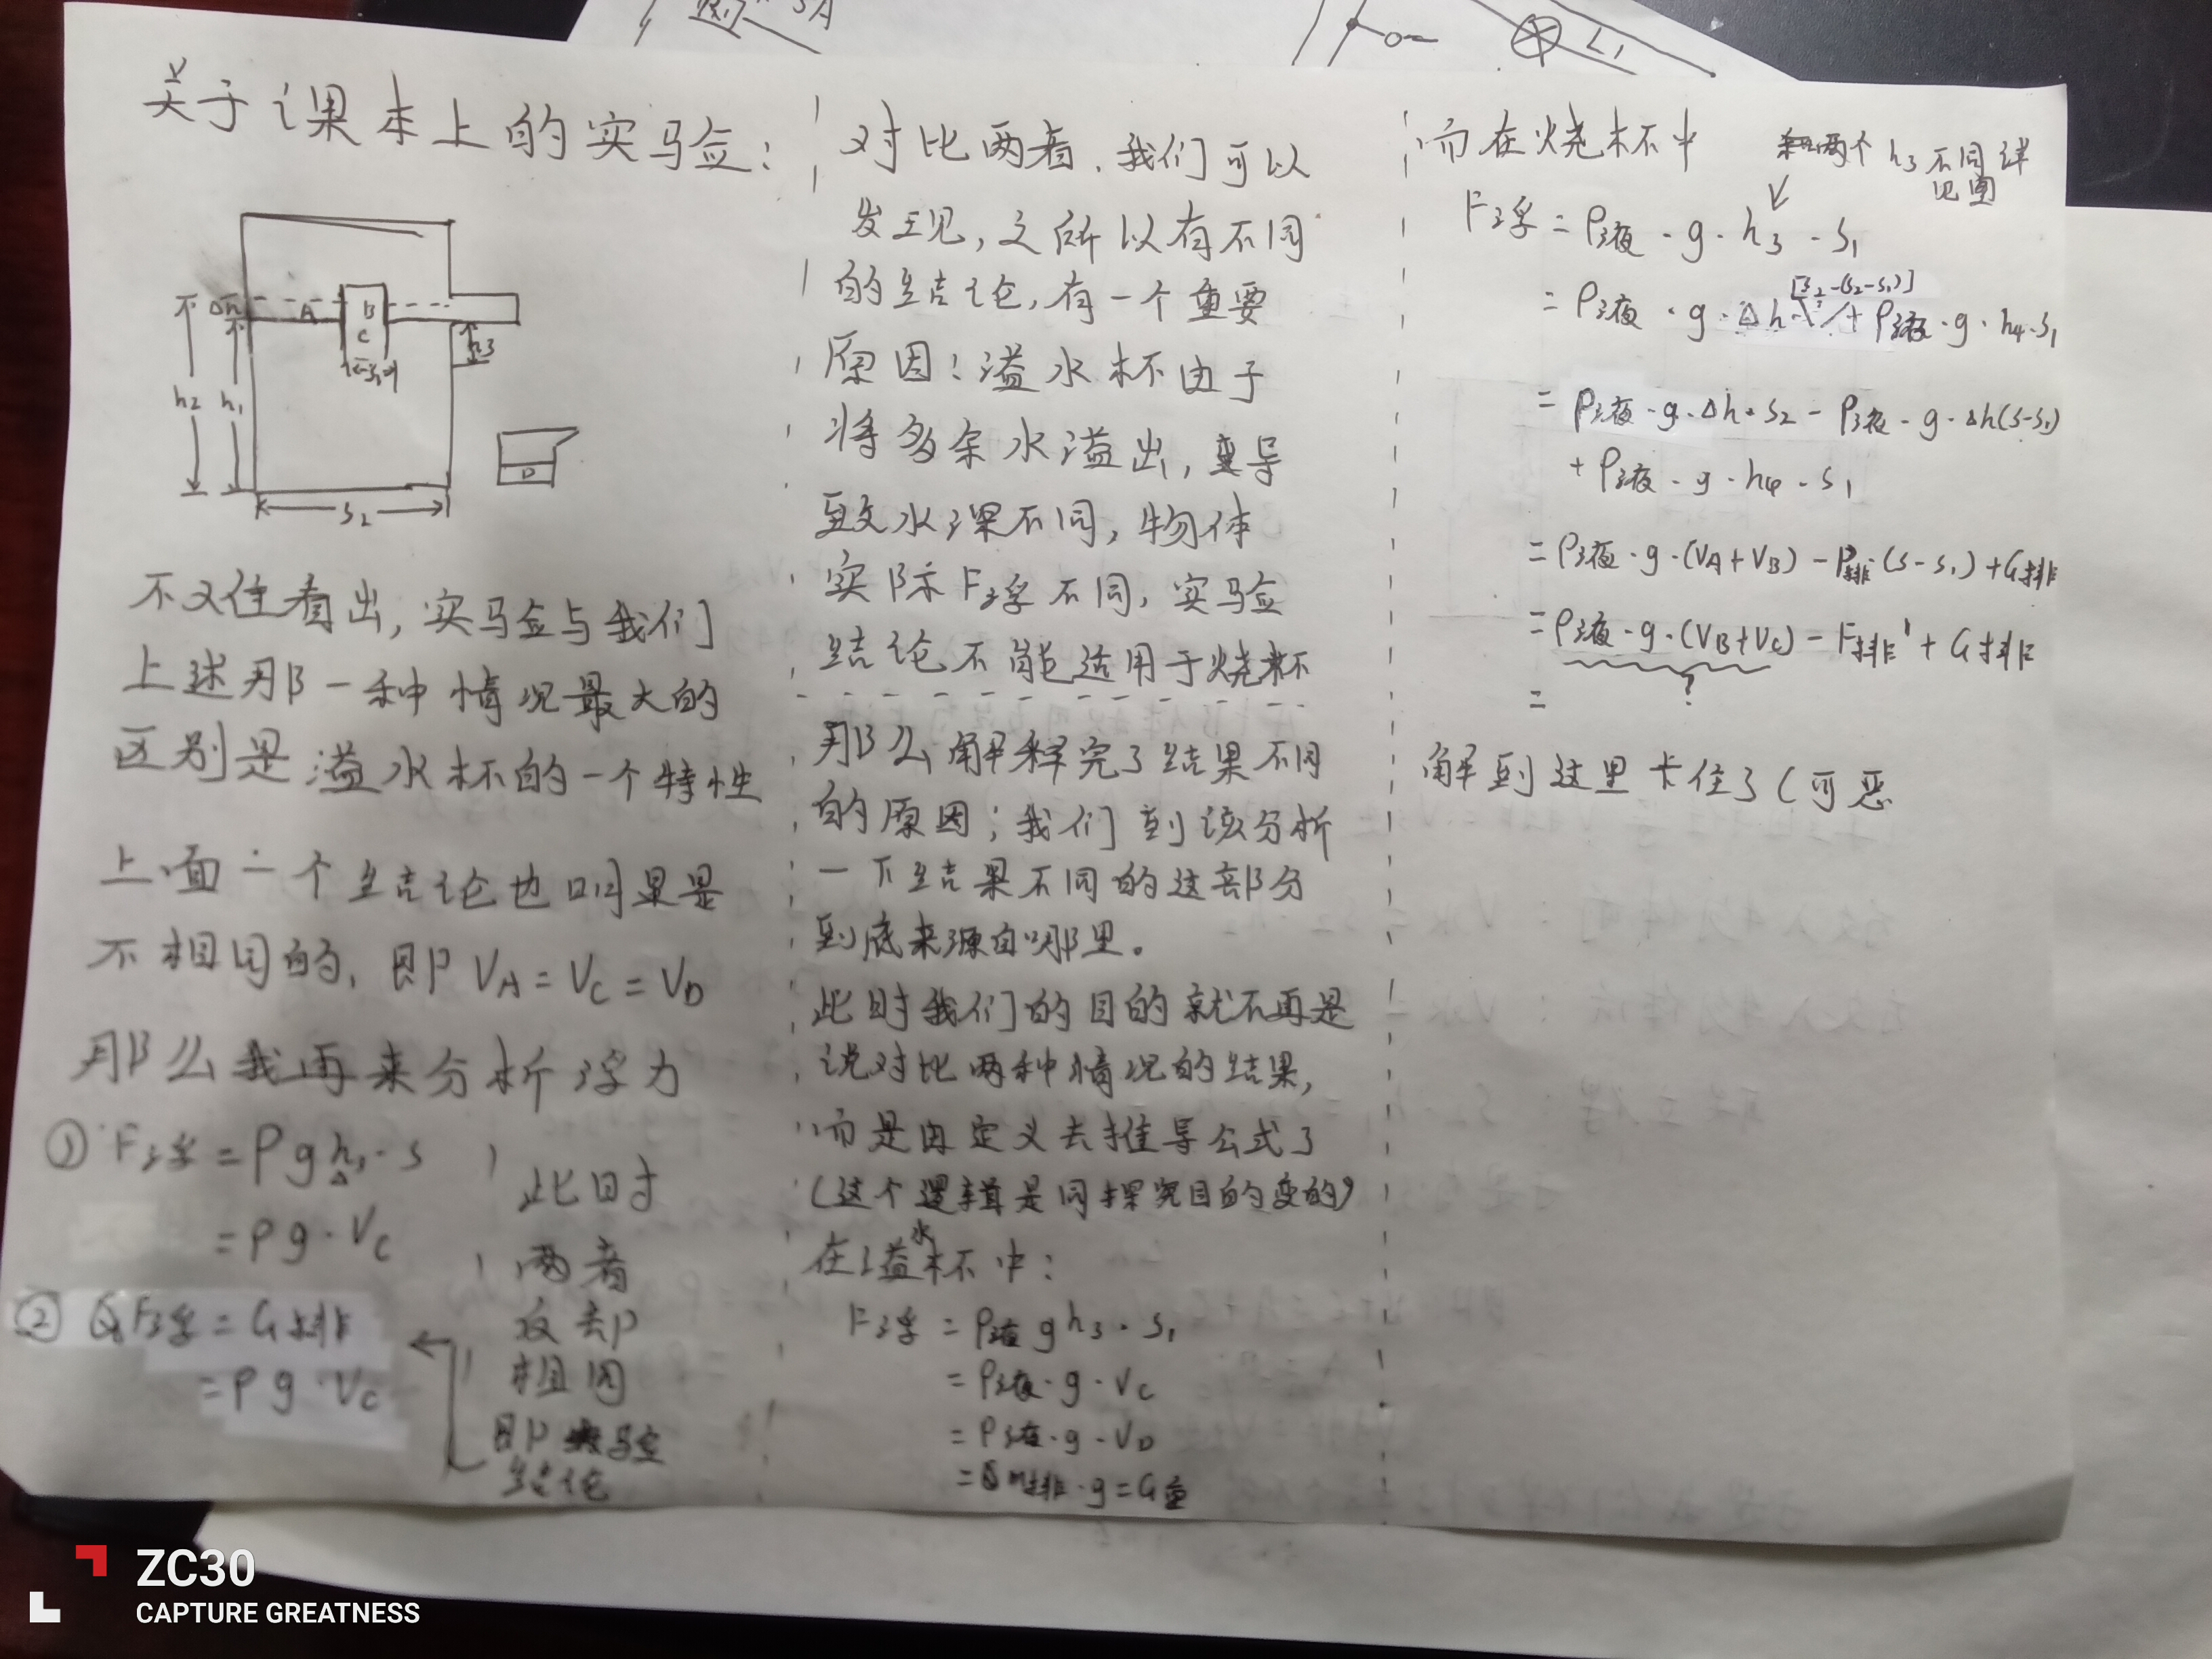 SA
L₁
关于课本上的实验：
Δh
A
B
C
S₁
h₃
h₂
h₁
S₂
D
不难看出，实验与我们
上述那一种情况最大的
区别是溢水杯的一个特性
上面一个结论也
不相同的，即 V_A = V_C = V_D
那么我再来分析浮力
① F浮 = ρgh₃·s
= ρg·V_C
② F浮 = G排
= ρg·V_C
此时
两者
相同
即实验
结论
对比两者，我们可以
发现，之所以有不同
的结论，有一个重要
原因！溢水杯由于
将多余水溢出，导
致水深不同，物体
实际F浮不同，实验
结论不能适用于烧杯
那么解释完了结果不同
的原因；我们到该分析
一下结果不同的这部分
到底来源自哪里。
此时我们的目的就不再是
说对比两种情况的结果，
而是由定义去推导公式了
（这个逻辑是同探究目的变的）
在溢水杯中：
F浮 = ρ液gh₃·S₁
= ρ液·g·V_C
= ρ液·g·V_D
= m排·g = G
而在烧杯中
两个h₃不同详
见图
F浮 = ρ液·g·h₃·S₁
= ρ液·g·Δh[S₂-(S₂-S₁)] + ρ液·g·h₄·S₁
= ρ液·g·Δh·S₂ - ρ液·g·Δh(S-S₁)
+ ρ液·g·h₄·S₁
= ρ液·g·(V_A+V_B) - P排·(S-S₁) + G排
= ρ液·g·(V_B+V_C) - F排' + G排
?
=
解到这里卡住了（可恶
ZC30
CAPTURE GREATNESS